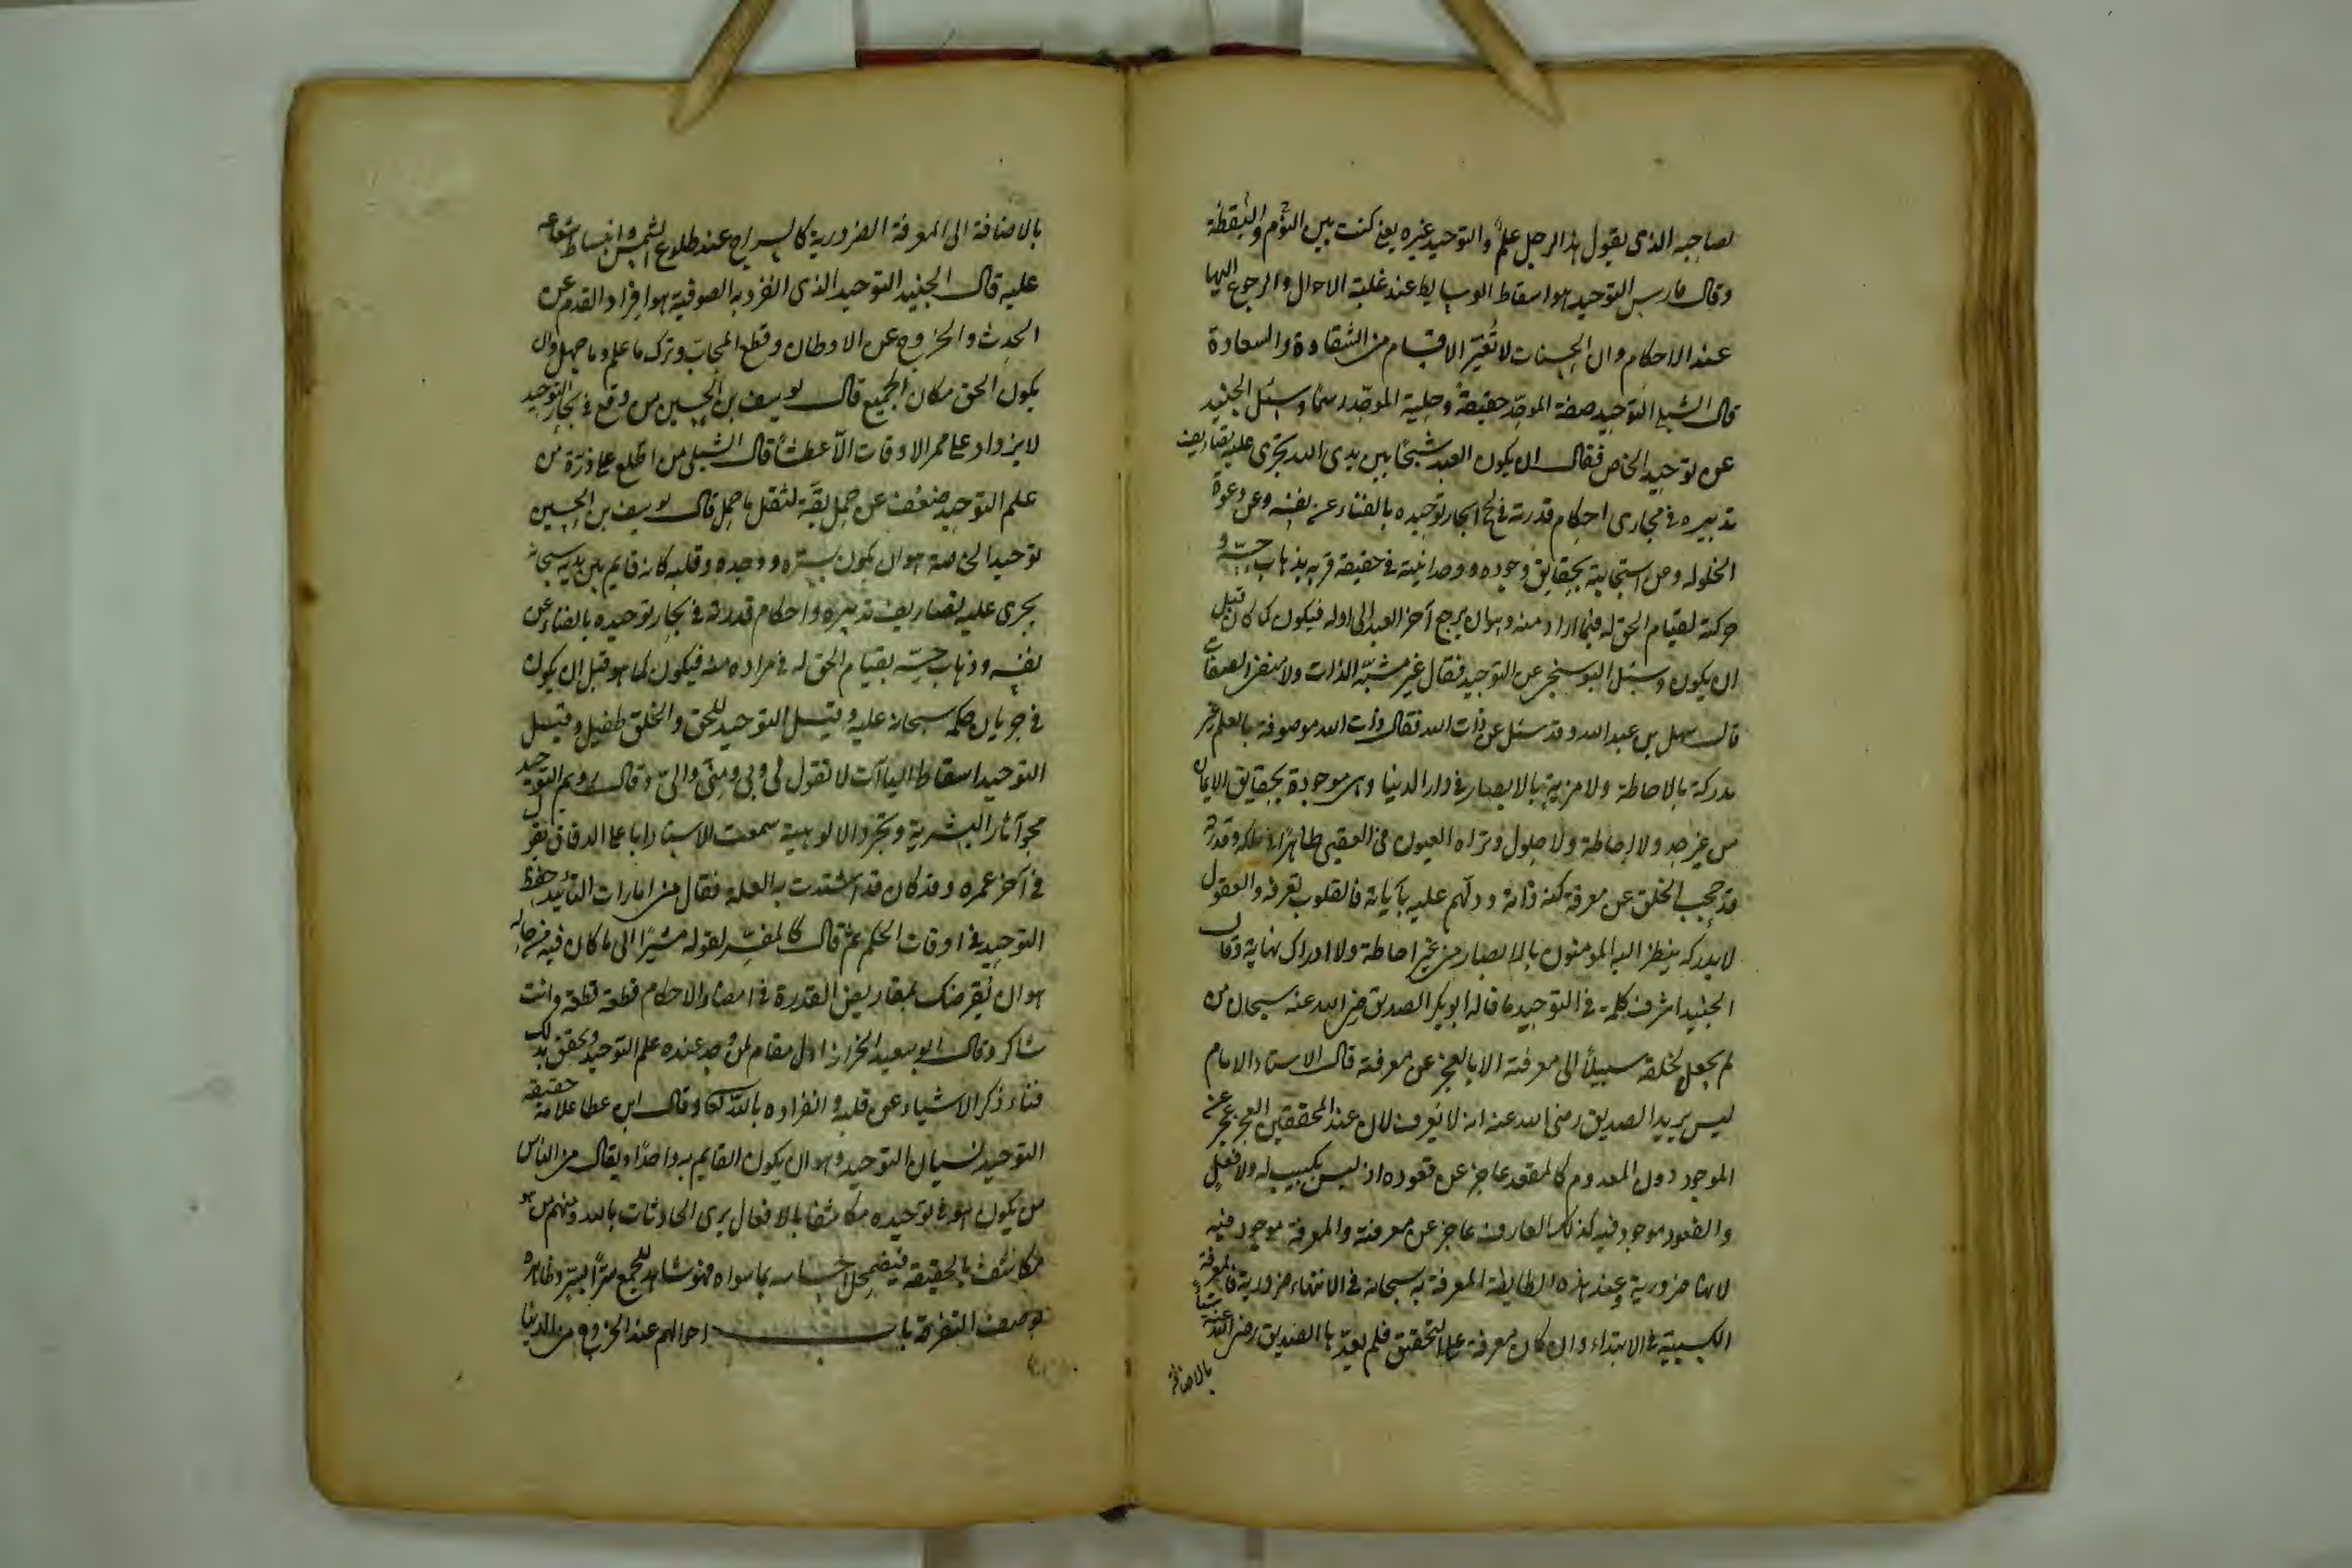 لصاحبه الذى يقول هذا الرجل علم والتوحيد غيره يعنى كنت بين النوم واليقظة
وقال فارس التوحيد هو اسقاط الوسايط عند غلبة الاحوال والرجوع اليها
عند الاحكام وان الحسنات لا تُغيّر الاقسام من الشقاوة والسعادة
قال الشبلى التوحيد صفة الموحّد حقيقةً وحلية الموحّد رسمًا وسئل الجنيد
عن توحيد الخاص فقال ان يكون العبد شبحًا بين يدى الله تجرى عليه تصاريف
تدبيره فى مجارى احكام قدرته فى لجج بحار توحيده بالفناء عن نفسه وعن دعوة
الخلق له وعن استجابته بحقايق وجوده ووحدانيته فى حقيقة قربه بذهاب حسّه و
حركته لقيام الحق له فيما اراد منه وهو ان يرجع آخر العبد الى اوله فيكون كما كان قبل
ان يكون وسئل البوسنجى عن التوحيد فقال غير مشبّه الذات ولا منفى الصفات
قال سهل بن عبد الله وقد سئل عن ذات الله فقال ذات الله موصوفة بالعلم غير
مدركة بالاحاطة ولا مرئية بالابصار فى دار الدنيا وهى موجودة بحقايق الايمان
من غير حد ولا احاطة ولا حلول وتراه العيون فى العقبى ظاهرًا فى ملكه وقدرته
قد حجب الخلق عن معرفة كنه ذاته ودلّهم عليه بآياته فالقلوب تعرفه والعقول
لا تدركه ينظر اليه المؤمنون بالابصار من غير احاطة ولا ادراك نهاية وقال
الجنيد اشرف كلمة فى التوحيد ما قاله ابو بكر الصديق رضى الله عنه سبحان من
لم يجعل لخلقه سبيلًا الى معرفته الا بالعجز عن معرفته قال الاستاد الامام
ليس يريد الصديق رضى الله عنه انه لا يعرف لان عند المحققين العجز عجز عن
الموجود دون المعدوم كالمقعد عاجز عن قعوده اذ ليس بكسب له ولا فعل
والقعود موجود فيه كذلك العارف عاجز عن معرفته والمعرفة موجود فيه
لانها ضرورية وعند هذه الطايفة المعرفة به سبحانه فى الانتهاء ضرورية فالمعرفة
الكسبية فى الابتداء وان كان معرفة على التحقيق فلم يعدّها الصديق رضى الله عنه شيئًا
بالاضافة
بالاضافة الى المعرفة الضرورية كالسراج عند طلوع الشمس وانبساط شعاعه
عليه قال الجنيد التوحيد الذى انفرد به الصوفية هو افراد القدم عن
الحدث والخروج عن الاوطان وقطع المحابّ وترك ما علم وما جهل وان
يكون الحق مكان الجميع قال يوسف بن الحسين من وقع فى بحار التوحيد
لا يزداد على ممر الاوقات الّا عطشًا قال الشبلى من اطلع على ذرّة من
علم التوحيد ضعُف عن حمل بقّة لثقل ما حمل قال يوسف بن الحسين
توحيد الخاصة هو ان يكون بسرّه ووجده وقلبه كانه قايم بين يديه سبحانه
يجرى عليه تصاريف تدبيره واحكام قدرته فى بحار توحيده بالفناء عن
نفسه وذهاب حسّه بقيام الحق له فى مراده منه فيكون كما هو قبل ان يكون
فى جريان حكمه سبحانه عليه وقيل التوحيد للحق والخلق طفيل وقيل
التوحيد اسقاط الياآت لا تقول لى وبى ومنّى والىّ وقال رويم التوحيد
محو آثار البشرية وتجرد الالوهية سمعت الاستاد ابا على الدقاق يقول
فى آخر عمره وقد كان قد اشتدت به العلة فقال من امارات التأييد حفظ
التوحيد فى اوقات الحكم ثم قال كالمفسّر لقوله مشيرًا الى ما كان فيه من حاله
هو ان يُقرضك بمقاريض القدرة فى امضاء الاحكام قطعة قطعة وانت
شاكر وقال ابو سعيد الخراز اول مقام لمن وجد عنده علم التوحيد وتحقق بذلك
فناء ذكر الاشياء عن قلبه وانفراده بالله تعالى وقال ابن عطا علامة حقيقة
التوحيد نسيان التوحيد وهو ان يكون القايم به واحدًا ويقال من الناس
من يكون هو فى توحيده مكاشفا بالافعال يرى الحادثات بالله ومنهم من هو
مكاشف بالحقيقة فيضمحل احساسه بما سواه فهو شاهد للجمع سرًّا بسرّ وظاهره
بوصف التفرقة باب احوالهم عند الخروج من الدنيا